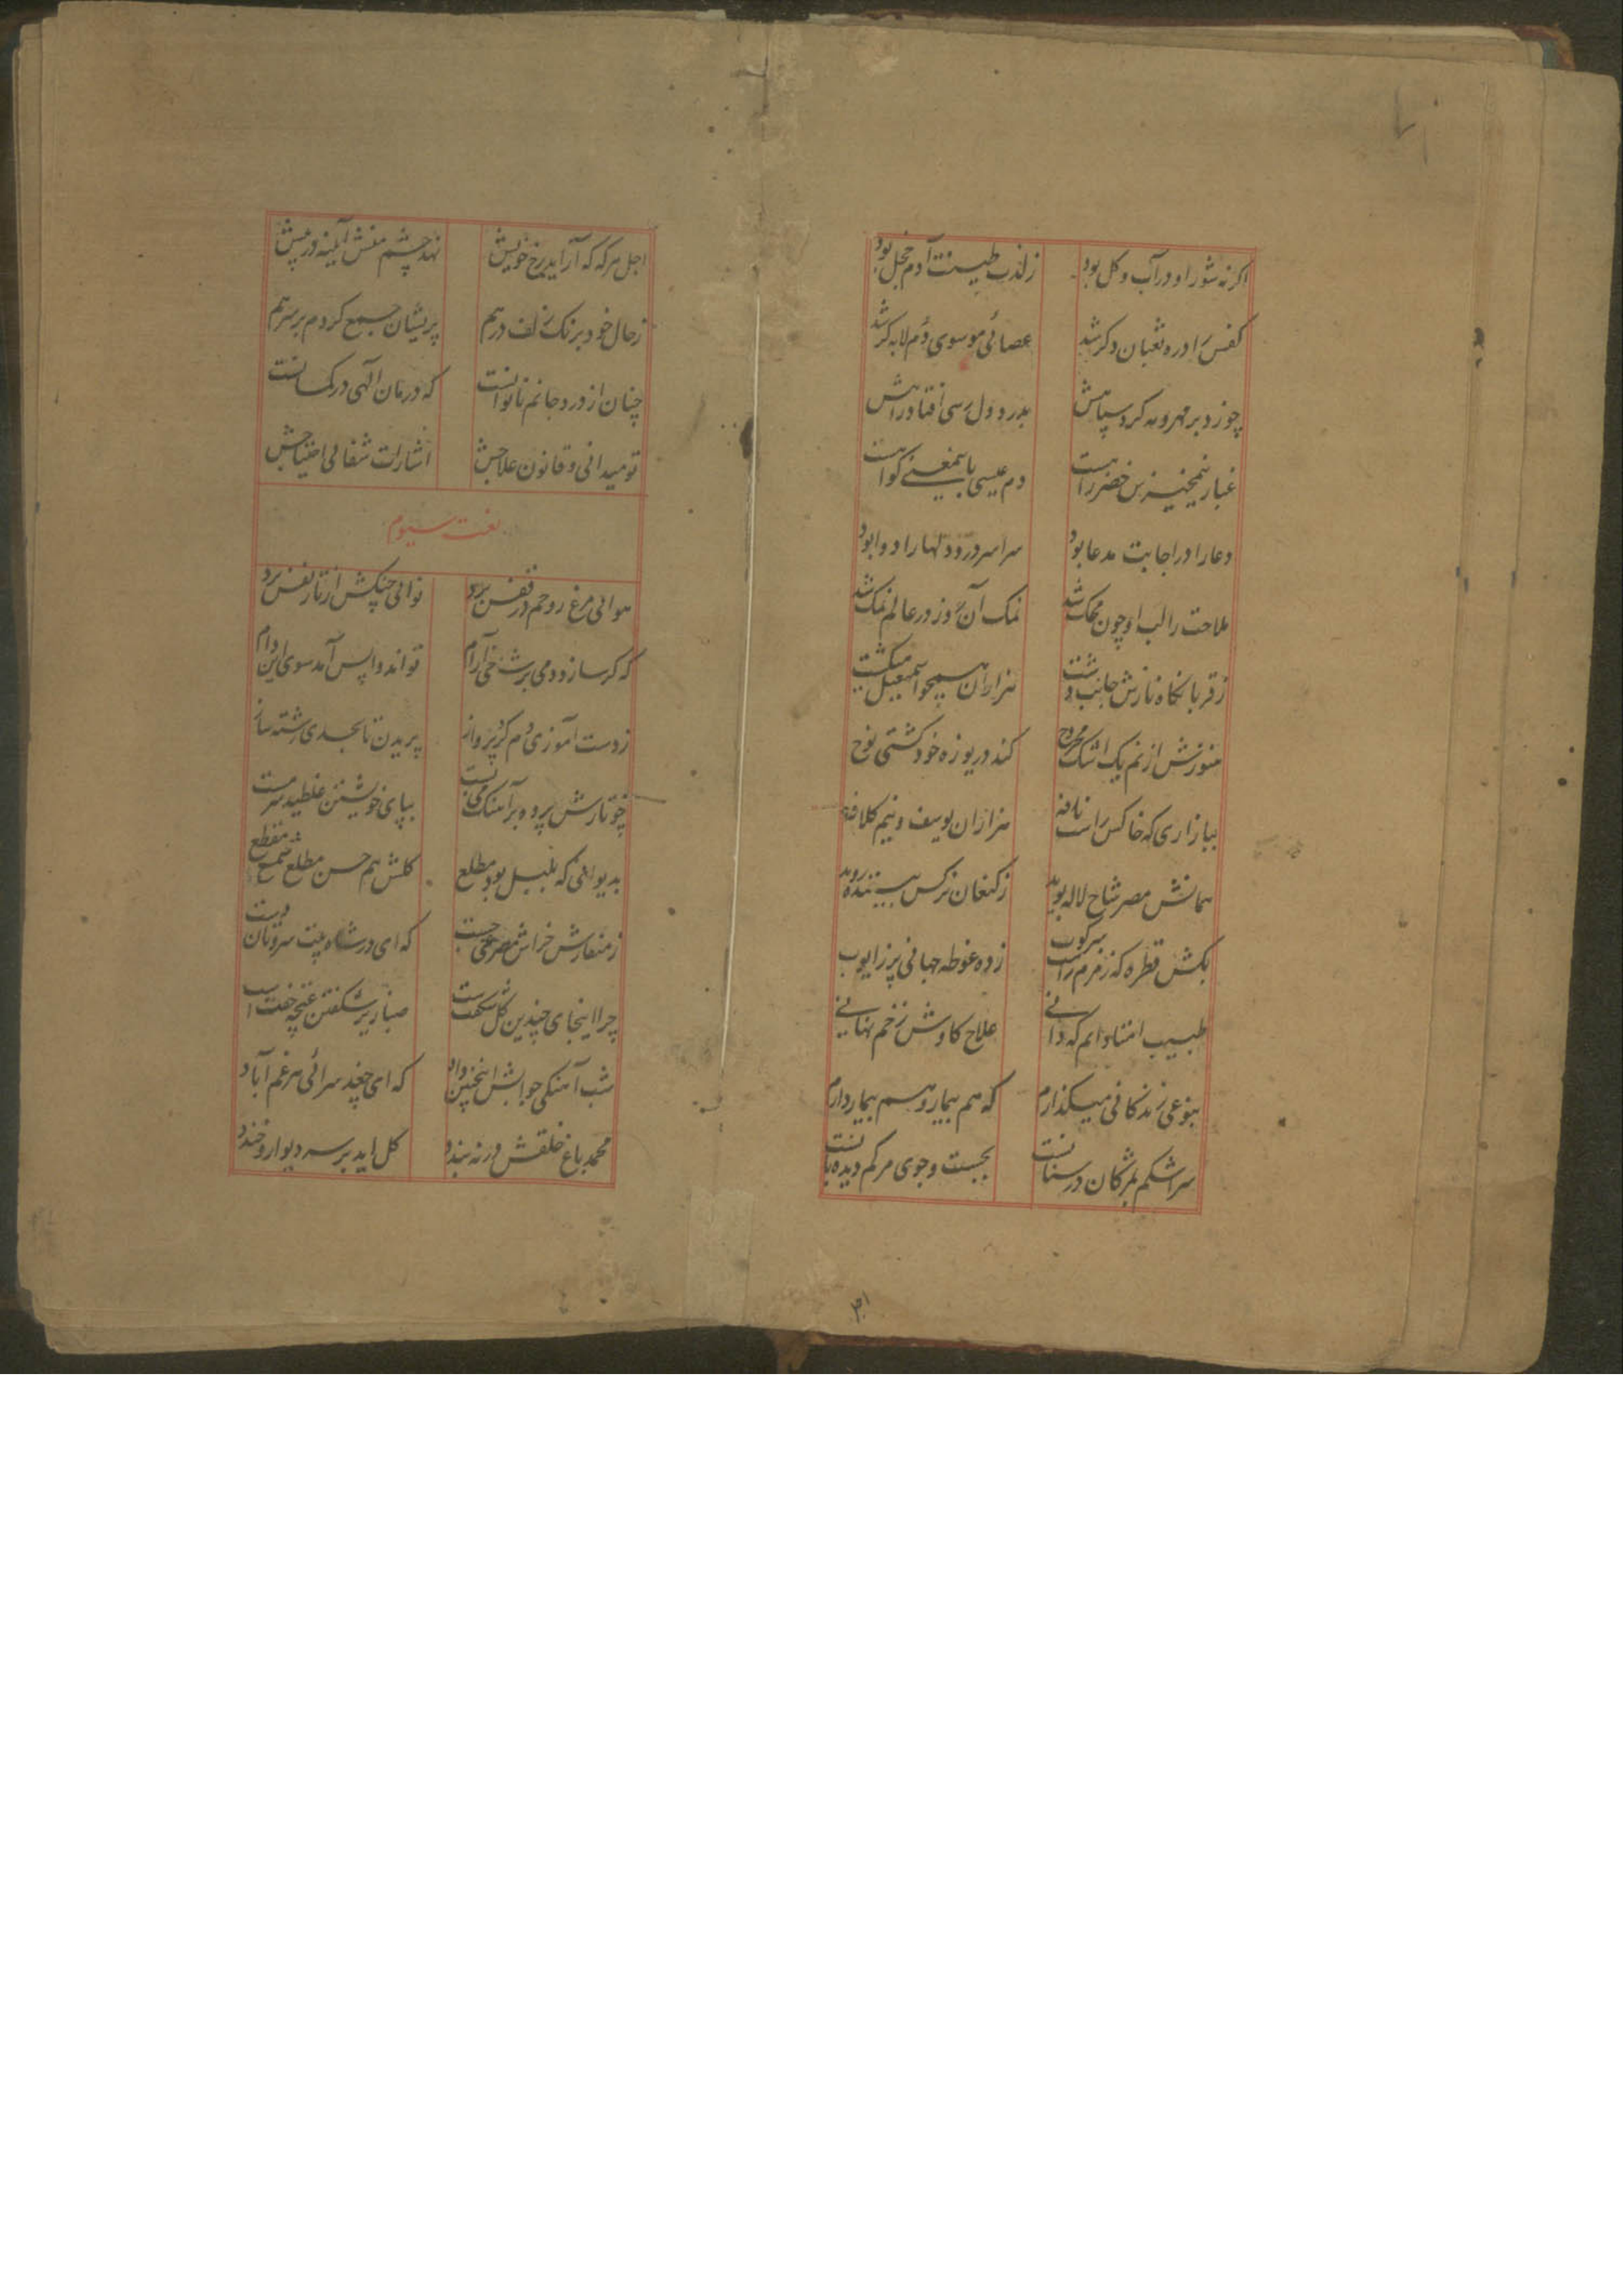 اگر نه شور او در آب و گل بود زلذب طینت آدم خجل بود
کفش را در ره ثعبان دگر شد عصائی موسوی دم لابه گر شد
چو زد بر مهر و مه گرد سپاهش بدرد دل رسی افتاد راهش
غبار نمیخیزش خضر راهست دم عیسی باینمعنی گواهست
دعا را در اجابت مدعا بود سراسر درد دلها را دوا بود
ملاحت را لب او چون محک شد نمک آن روز در عالم نمک شد
ز قربانگاه نازش جانب دشت هزاران همچو اسمعیل میگشت
هنوزش از نم یک اشک مجروح کند دریوزه خود کشتی نوح
ببازاری که خاکش راست نافه هزاران یوسف و نیم کلافه
همانش مصر شاخ لاله بوید ز کنعان نرگس بیننده روید
بکش قطره که زمزم راست سرکوب زده غوطه جهانی پر ز ایوب
طبیب اوستادانم که دانی علاج کاوش زخم نهانی
بنوعی زندگانی میگذارم که هم بیمار و هم بیمار دارم
سر اشکم بمژگان درسنانست بجست و جوی مرگم دیده بانست
اجل هر گه که آراید رخ خویش نهد چشم منش آیینه در پیش
ز حال خود برنگ زلف درهم پریشان جمع کردم بر سر هم
چنان از درد جانم ناتوانست که درمان الهی در کسانست
تو میدانی و قانون علاجش اشارات شفائی احتیاجش
نعت سیوم
هوائی مرغ روحم در قفس برد نوائی چنگش از تار نفس برد
که گر سازد دمی بر شاخی آرام تواند واپس آمد سوی این دام
ز دست آموزی دم کز پرواز پریدن تا بحدی رشته ساز
چو تارش پرده بر آهنگ می بست بپای خویشتن غلطید سرمست
بدیوانی که بلبل بود مطلع گلش هم حسن مطلع شمع مقطع
ز منقارش خراش مصرعی جست که ای در شاه بیت سرو تان دست
چرا اینجای چندین گل شگفت است صبا زیر شگفتن غنچه خفت است
شب آهنگی جوابش اینچنین داد که ای چغد سرائی هر غم آباد
محمد باغ خلقش در نه بندد گل اید بر سر دیوار و خندد
۳۱